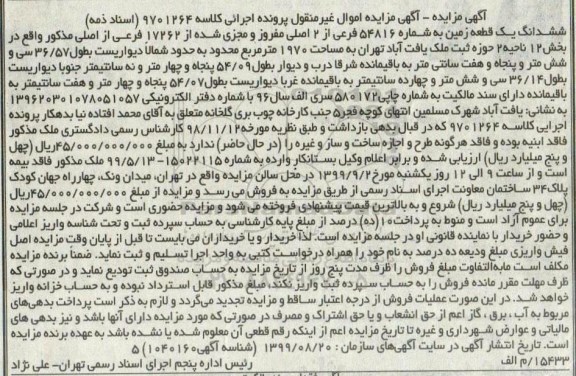 آگهی مزایده - آگهی مزایده اموال غیرمنقول پرونده اجرائی کلاسه ۹۷۰۱۲۶۴ (اسناد ذمه)
ششدانگ یک قطعه زمین به شماره ۵۴۸۱۶ فرعی از ۲ اصلی مفروز و مجزی شده از ۱۷۲۶۲ فرعی از اصلی مذکور واقع در
بخش ۱۲ ناحیه ۲ حوزه ثبت ملک یافت آباد تهران به مساحت ۱۹۷۰ مترمربع محدود به حدود شمالاً دیواریست بطول ۳۶/۵۷ سی و
شش متر و پنجاه و هفت سانتی متر به باقیمانده شرقا درب و دیوار بطول ۵۴/۰۹ پنجاه و چهار متر و نه سانتیمتر جنوبا دیواریست
بطول ۳۶/۱۴ سی و شش متر و چهارده سانتیمتر به باقیمانده غربا دیواریست بطول ۵۴/۰۷ پنجاه و چهار متر و هفت سانتیمتر به
باقیمانده دارای سند مالکیت به شماره چاپی ۵۸۰۱۷۲ سری الف سال ۹۶ با شماره دفتر الکترونیکی ۱۳۹۶۲۰۳۰۱۰۷۸۰۵۱۰۵۷
به نشانی: یافت آباد شهرک مسلمین انتهای کوچه فجر ۵ جنب کارخانه چوب بری گلخانه متعلق به آقای محمد افتاده نیا بدهکار پرونده
اجرایی کلاسه ۹۷۰۱۲۶۴ که در قبال بدهی بازداشت و طبق نظریه مورخه ۹۸/۱۱/۱۲ کارشناس رسمی دادگستری ملک مذکور
فاقد ابنیه بوده و فاقد هرگونه طرح و اجازه ساخت و ساز و غیره را (در حال حاضر) ندارد به مبلغ ۴۵/۰۰۰/۰۰۰/۰۰۰ ریال (چهل
و پنج میلیارد ریال) ارزیابی شده و برابر اعلام وکیل بستانکار وارده به شماره ۱۵۰۲۲۱۱۵- ۹۹/۵/۱۳ ملک مذکور فاقد بیمه
است و از ساعت ۹ الی ۱۲ روز یکشنبه مورخ ۱۳۹۹/۹/۲ در محل سالن مزایده واقع در تهران، میدان ونک، چهارراه جهان کودک
پلاک ۳۴ ساختمان معاونت اجرای اسناد رسمی از طریق مزایده به فروش می رسد و مزایده از مبلغ ۴۵/۰۰۰/۰۰۰/۰۰۰ ریال
(چهل و پنج میلیارد ریال) شروع و به بالاترین قیمت پیشنهادی فروخته می شود و مزایده حضوری است و شرکت در جلسه مزایده
برای عموم آزاد است و منوط به پرداخت ۱۰ (ده) درصد از مبلغ پایه کارشناسی به حساب سپرده ثبت و تحت شناسه واریز اعلامی
و حضور خریدار یا نماینده قانونی او در جلسه مزایده است. لذا خریدار و یا خریداران می بایست تا قبل از پایان وقت مزایده اصل
فیش واریزی مبلغ ودیعه ده درصد به نام خود را همراه درخواست کتبی به واحد اجرا تسلیم و ثبت نماید. ضمناً برنده مزایده
مکلف است مابه التفاوت مبلغ فروش را ظرف مدت پنج روز از تاریخ مزایده به حساب صندوق ثبت تودیع نماید و در صورتی که
ظرف مهلت مقرر مانده فروش را به حساب سپرده ثبت واریز نکند، مبلغ مذکور قابل استرداد نبوده و به حساب خزانه واریز
خواهد شد. در این صورت عملیات فروش از درجه اعتبار ساقط و مزایده تجدید می گردد و لازم به ذکر است پرداخت بدهی های
مربوط به آب، برق، گاز اعم از حق انشعاب و یا حق اشتراک و مصرف در صورتی که مورد مزایده دارای آنها باشد و نیز بدهی های
مالیاتی و عوارض شهرداری و غیره تا تاریخ مزایده اعم از اینکه رقم قطعی آن معلوم شده یا نشده باشد به عهده برنده مزایده
است. تاریخ انتشار آگهی در سایت آگهی های سازمان: ۱۳۹۹/۰۸/۲۰ (شناسه آگهی ۱۰۴۰۱۶۰) ۵
۱۵۴۳۳/م الف رئیس اداره پنجم اجرای اسناد رسمی تهران- علی نژاد